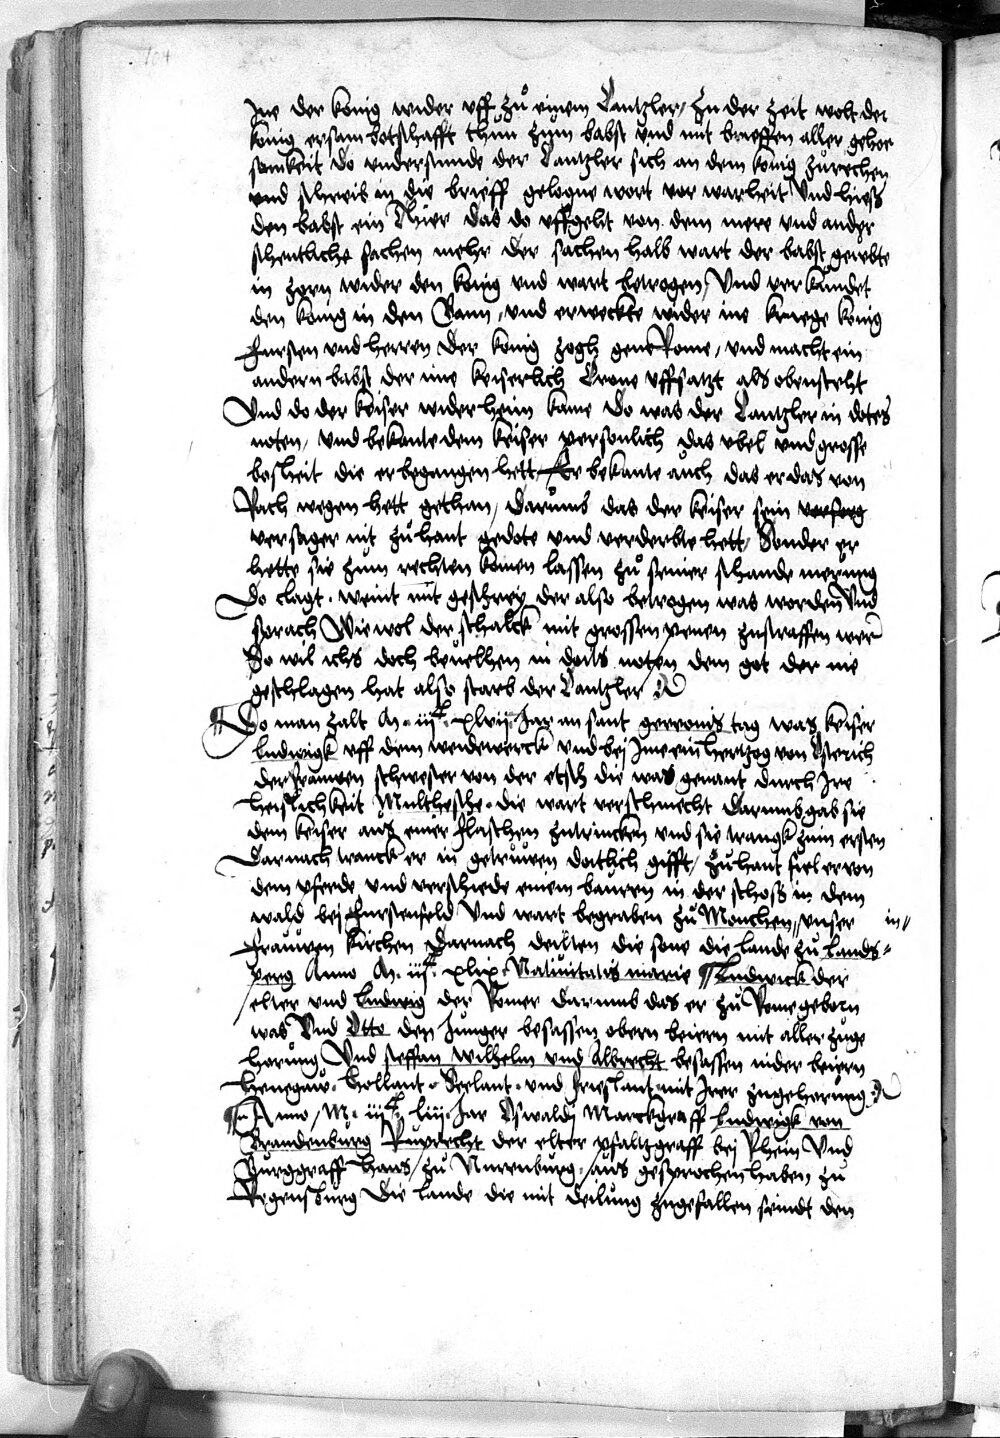 104
Ine der konig wider uff zů einem Cantzler / Zu der zeit wolt der
konig ersam botschafft thun zum babst vnd mit brieffen aller gehor
samkeit Do vnderstunde der Cantzler sich an dem konig zů rechen
vnd schreib in die brieff gelogne wort vor warheit Vnd hieß
den babst ein Thier das do uffgeht von dem mere vnd ander
schentliche sachen mehr der sachen halb wart der babst
in zorn wider den konig vnd wart betrogen / Vnd verkůndet
den konig in den Bann / vnd erweckte wider ine kriege konig
Fursten vnd herren Der konig zogh gene Rome / vnd macht ein
andern babst der ime keiserlich Crone uffsatzt als obensteht
Vnd do der keiser wider heim kame Do was der Cantzler in dotes
noten / vnd bekante dem keiser personlich das vbel vnd grosse
bosheit die er begangen hett Er bekante auch das er das von
Rach wegen hett gethan / darumb das der keiser sein
versager nit zůhant gedote vnd verderbte hett / Sonder er
hette sie zum rechten komen lassen zů seiner schande
Do clagt weint mit geschrey der also betrogen was worden Vnd
sprach Wie wol der schalck mit grossen penen zustraffen wer
So wil ichs doch beuelhen in dotes noten dem got der ine
geschlagen hat also starb der Cantzler
Do man zalt M iijc xlvij Jar an sant gereonis tag was keiser
ludwigk uff dem weidewerck vnd bei Ime ein hertzog von Osterich
der frauwen schwester von der etsch die was genant durch Ire
heslichkeit Multhesche die wart verschmecht Darumb gab sie
dem keiser aus einer flaschen zutrincken vnd sie trangk zum ersten
Darnach tranck er in getruwen dotlich gifft / Zůhant fiel er von
dem pferde vnd verschiede einem baurrn in der schoß in dem
wald bei Furstenfeld Vnd wart begraben zů Monchen / vnser in
frauwen kirchen Darnach deilten die sone die lande zů Lands-
perg Anno M iijc xlix Natiuitatis marie Ludwick der
elter vnd Ludwig der Romer darumb das er zů Rome geborn
was Vnd Otto den Junger besassen obern beiern mit aller zuge
horung Vnd steffan wilhelm vnd Albrecht besassen nider beiern
Henegaw Hollant Seelant vnd Frieslant mit Irer zugehorung
Anno M iijc liij Jar Oswaldj Marckgraff Ludwigk von
Brandenburg Ruprecht der elter pfaltzgraff bej Rhein Vnd
Burggraff Hans zů Nurrenburg aus gesprochen haben zů
Regenspurg Die lande die mit deilung zugefallen seindt den